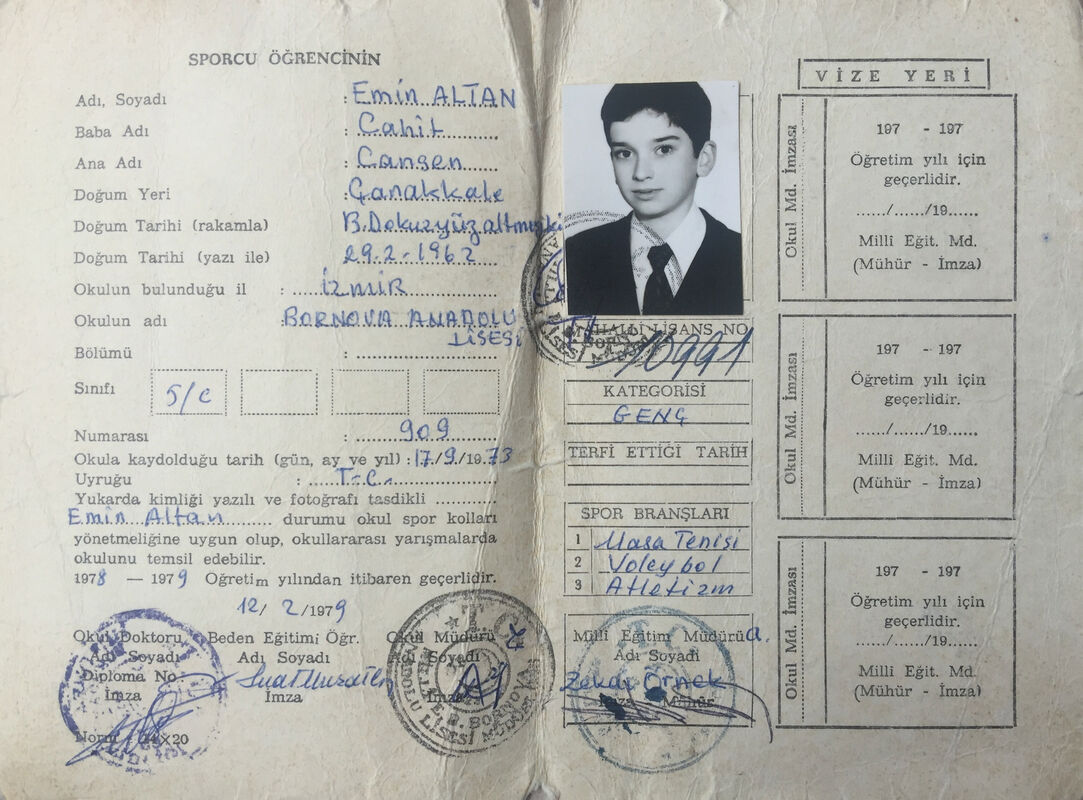 SPORCU ÖĞRENCİNİN
Adı, Soyadı : Emin ALTAN
Baba Adı : Cahit
Ana Adı : Cansen
Doğum Yeri : Çanakkale
Doğum Tarihi (rakamla) B.Dokuzyüzaltmışiki
Doğum Tarihi (yazı ile) : 29.2-1962
Okulun bulunduğu il : İZMİR
Okulun adı : BORNOVA ANADOLU
LİSESİ
Bölümü :
Sınıfı 5/C
Numarası : 909
Okula kaydolduğu tarih (gün, ay ve yıl) : 17/9/1973
Uyruğu : T.C.
Yukarda kimliği yazılı ve fotoğrafı tasdikli ............
Emin Altan ........ durumu okul spor kolları
yönetmeliğine uygun olup, okullararası yarışmalarda
okulunu temsil edebilir.
1978 — 1979 Öğretim yılından itibaren geçerlidir.
12/ 2/1979
Okul Doktoru
Adı Soyadı
Diploma No
İmza
Beden Eğitimi Öğr.
Adı Soyadı
İmza
Okul Müdürü
Adı Soyadı
İmza
T.C.
MAHALLİ LİSANS NO
10991
KATEGORİSİ
GENÇ
TERFİ ETTİĞİ TARİH
SPOR BRANŞLARI
1 Masa Tenisi
2 Voleybol
3 Atletizm
Milli Eğitim Müdürü a.
Adı Soyadı
Zekdi Örnek
İmza Mühür
VİZE YERİ
Okul Md. İmzası
197 - 197
Öğretim yılı için
geçerlidir.
....../....../19......
Milli Eğit. Md.
(Mühür - İmza)
Okul Md. İmzası
197 - 197
Öğretim yılı için
geçerlidir.
....../....../19......
Milli Eğit. Md.
(Mühür - İmza)
Okul Md. İmzası
197 - 197
Öğretim yılı için
geçerlidir.
....../....../19......
Milli Eğit. Md.
(Mühür - İmza)